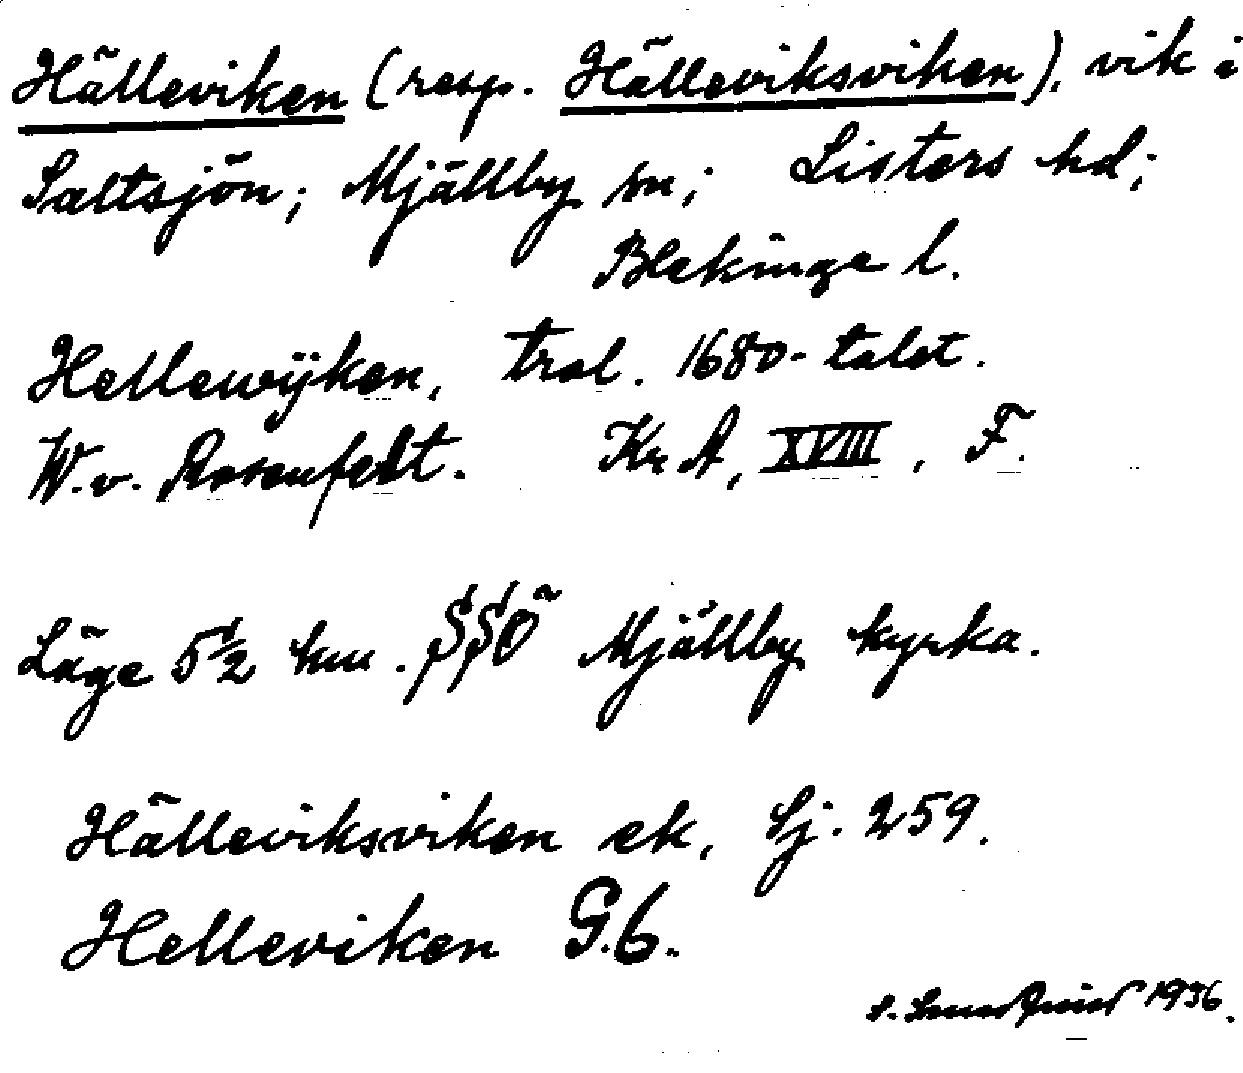 Hälleviken (resp. Hälleviksviken), vik i
Saltsjön; Mjällby sn; Listers hd;
Blekinge l.
Hellewijken, trol. 1680-talet.
W. v. Rosenfelt. Kr A, XVIII, F.
Läge 5½ km. SSÖ Mjällby kyrka.
Hälleviksviken ek, Sj. 259.
Helleviken G.6.
1936.